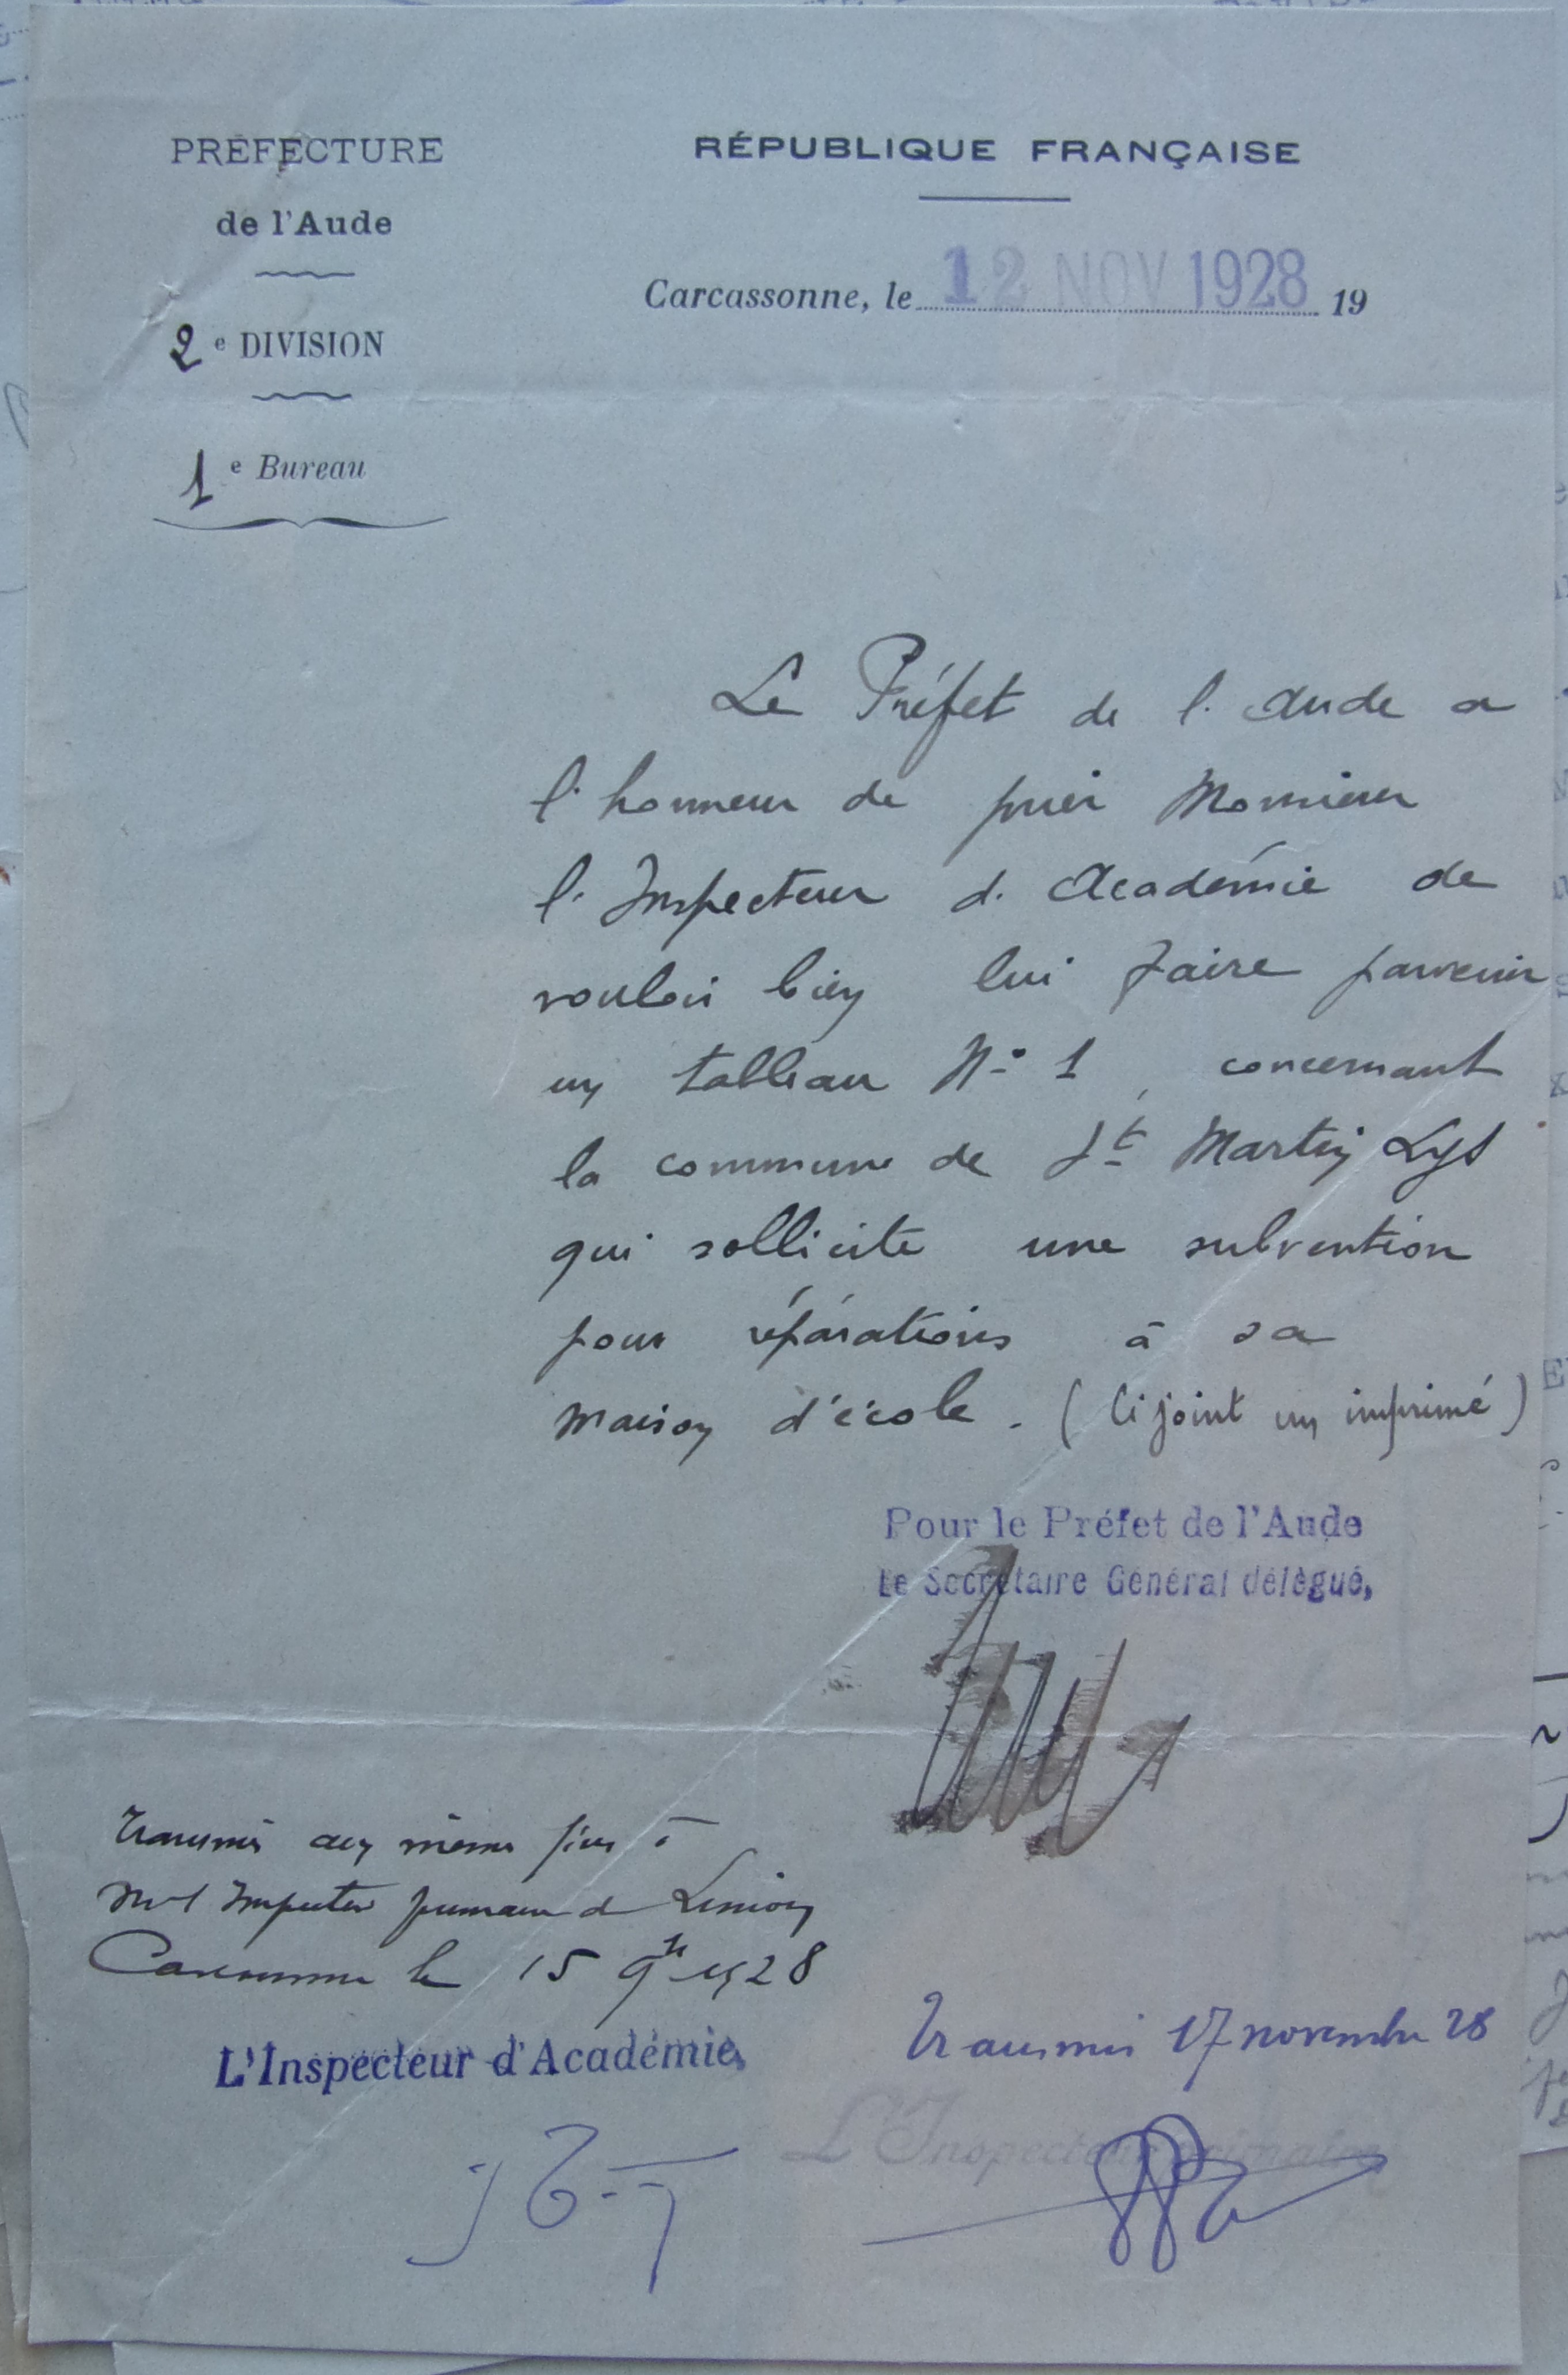 PRÉFECTURE
de l'Aude
2e DIVISION
1e Bureau
RÉPUBLIQUE FRANÇAISE
Carcassonne, le 12 NOV 1928 19
Le Préfet de l'Aude a
l'honneur de prier Monsieur
l'Inspecteur d'Académie de
vouloir bien lui faire parvenir
un tableau N° 1, concernant
la commune de St Martin Lys
qui sollicite une subvention
pour réparations à sa
maison d'école. (Ci joint un imprimé)
Pour le Préfet de l'Aude
Le Secrétaire Général délégué,
Transmis aux mêmes fins à
Mr l'Inspecteur primaire de Limoux
Carcassonne le 15 9bre 1928
L'Inspecteur d'Académie,
Transmis 17 novembre 28
L'Inspecteur primaire